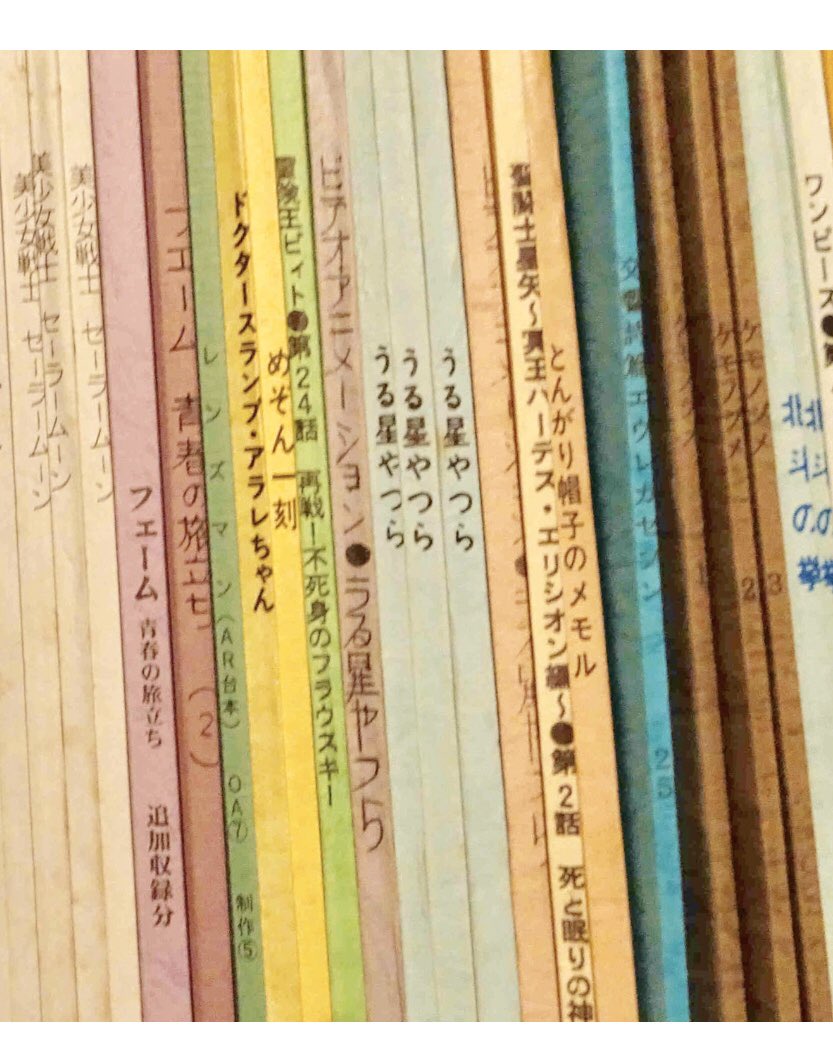 美少女戦士 セーラームーン
美少女戦士 セーラームーン
美少女戦士 セーラームーン
フェーム 青春の旅立ち 追加収録分
フェーム 青春の旅立ち (2)
レンズマン (AR台本) OA⑦ 制作⑤
ドクタースランプ・アラレちゃん
めぞん一刻
冒険王ビィト●第24話 再戦!不死身のフラウスキー
ビデオアニメーション●うる星やつら
うる星やつら
うる星やつら
うる星やつら
聖闘士星矢〜冥王ハーデス・エリシオン編〜●第2話 死と眠りの神
とんがり帽子のメモル
エウレカセブン 25
ケモノヅメ 2
ケモノヅメ 3
北斗の拳
北斗の拳
ワンピース●第